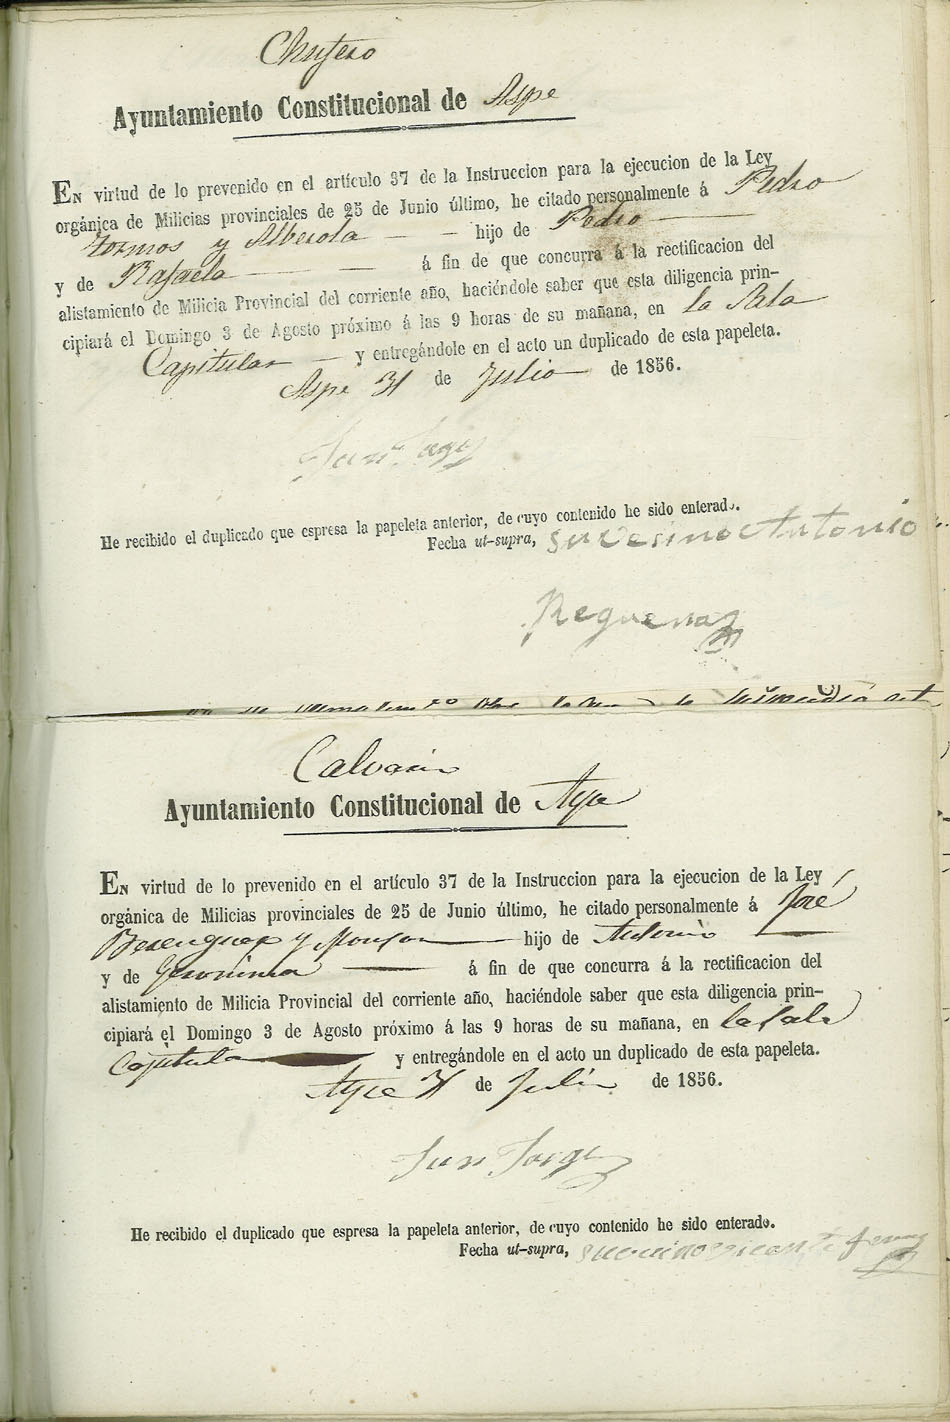 Chufero
Ayuntamiento Constitucional de Aspe
En virtud de lo prevenido en el artículo 37 de la Instruccion para la ejecucion de la Ley
orgánica de Milicias provinciales de 25 de Junio último, he citado personalmente á Pedro
tormos y Alberola hijo de Pedro
y de Rafaela á fin de que concurra á la rectificacion del
alistamiento de Milicia Provincial del corriente año, haciéndole saber que esta diligencia prin-
cipiará el Domingo 3 de Agosto próximo á las 9 horas de su mañana, en la Sala
Capitular y entregándole en el acto un duplicado de esta papeleta.
Aspe 31 de Julio de 1856.
He recibido el duplicado que espresa la papeleta anterior, de cuyo contenido he sido enterado.
Fecha ut-supra, suvesino Antonio
Requena
Calvario
Ayuntamiento Constitucional de Aspe
En virtud de lo prevenido en el artículo 37 de la Instruccion para la ejecucion de la Ley
orgánica de Milicias provinciales de 25 de Junio último, he citado personalmente á José
Berenguer y hijo de Antonio
y de Geronima á fin de que concurra á la rectificacion del
alistamiento de Milicia Provincial del corriente año, haciéndole saber que esta diligencia prin-
cipiará el Domingo 3 de Agosto próximo á las 9 horas de su mañana, en la Sala
Capitula y entregándole en el acto un duplicado de esta papeleta.
Aspe 31 de Julio de 1856.
Juan Jorge
He recibido el duplicado que espresa la papeleta anterior, de cuyo contenido he sido enterado.
Fecha ut-supra,